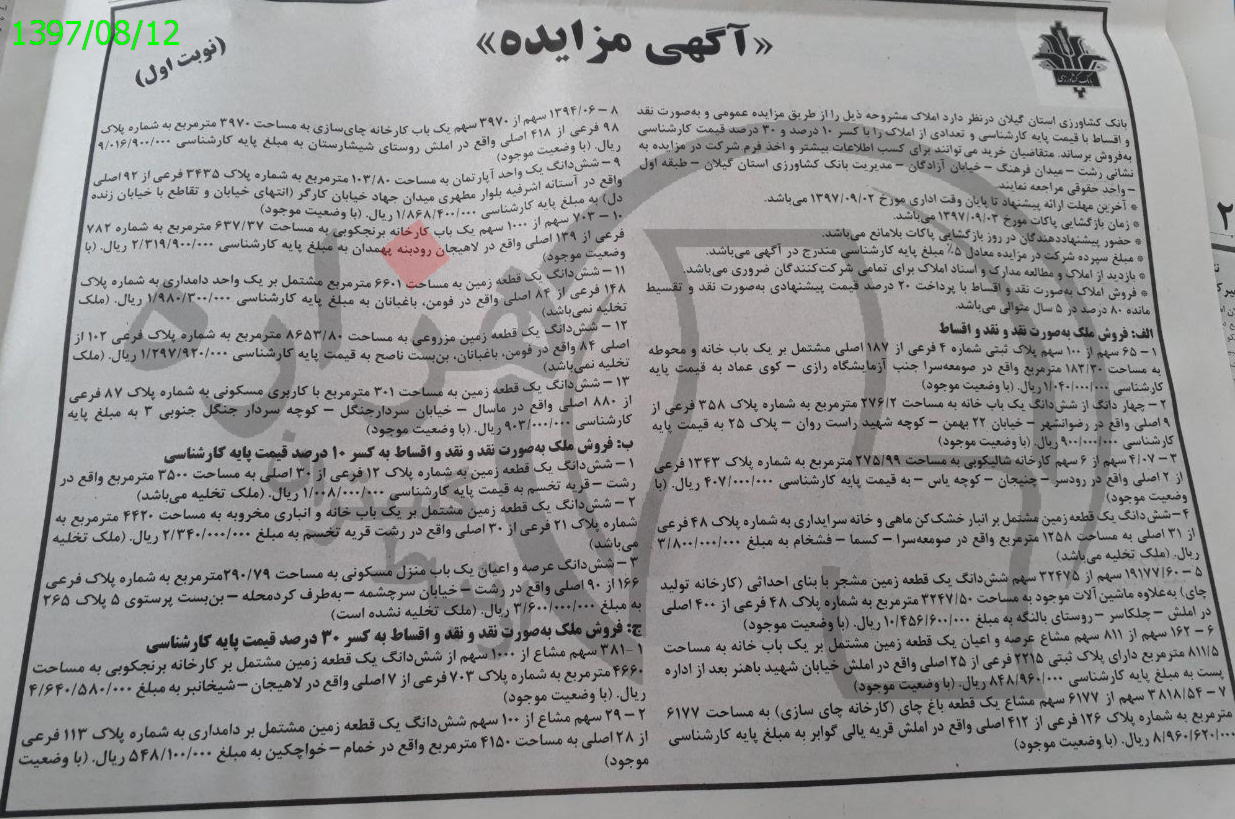 1397/08/12
«آگهی مزایده»
(نوبت اول)
بانک کشاورزی
بانک کشاورزی استان گیلان درنظر دارد املاک مشروحه ذیل را از طریق مزایده عمومی و به‌صورت نقد
و اقساط با قیمت پایه کارشناسی و تعدادی از املاک را با کسر ۱۰ درصد و ۳۰ درصد قیمت کارشناسی
به‌فروش برساند. متقاضیان خرید می‌توانند برای کسب اطلاعات بیشتر و اخذ فرم شرکت در مزایده به
نشانی رشت – میدان فرهنگ – خیابان آزادگان – مدیریت بانک کشاورزی استان گیلان – طبقه اول
– واحد حقوقی مراجعه نمایند.
* آخرین مهلت ارائه پیشنهاد تا پایان وقت اداری مورخ ۱۳۹۷/۰۹/۰۲ می‌باشد.
* زمان بازگشایی پاکات مورخ ۱۳۹۷/۰۹/۰۳ می‌باشد.
* حضور پیشنهاددهندگان در روز بازگشایی پاکات بلامانع می‌باشد.
* مبلغ سپرده شرکت در مزایده معادل ۵٪ مبلغ پایه کارشناسی مندرج در آگهی می‌باشد.
* بازدید از املاک و مطالعه مدارک و اسناد املاک برای تمامی شرکت‌کنندگان ضروری می‌باشد.
* فروش املاک به‌صورت نقد و اقساط با پرداخت ۲۰ درصد قیمت پیشنهادی به‌صورت نقد و تقسیط
مانده ۸۰ درصد در ۵ سال متوالی می‌باشد.
الف: فروش ملک به‌صورت نقد و نقد و اقساط
۱ – ۶۵ سهم از ۱۰۰ سهم پلاک ثبتی شماره ۴ فرعی از ۱۸۷ اصلی مشتمل بر یک باب خانه و محوطه
به مساحت ۱۸۳/۳۰ مترمربع واقع در صومعه‌سرا جنب آزمایشگاه رازی – کوی عماد به قیمت پایه
کارشناسی ۱/۰۴۰/۰۰۰/۰۰۰ ریال. (با وضعیت موجود)
۲ – چهار دانگ از شش‌دانگ یک باب خانه به مساحت ۲۷۶/۲ مترمربع به شماره پلاک ۳۵۸ فرعی از
۹ اصلی واقع در رضوانشهر – خیابان ۲۲ بهمن – کوچه شهید راست روان – پلاک ۲۵ به قیمت پایه
کارشناسی ۹۰۰/۰۰۰/۰۰۰ ریال. (با وضعیت موجود)
۳ – ۴/۰۷ سهم از ۶ سهم کارخانه شالیکوبی به مساحت ۲۷۵/۹۹ مترمربع به شماره پلاک ۱۳۴۳ فرعی
از ۲ اصلی واقع در رودسر – چنیجان – کوچه یاس – به قیمت پایه کارشناسی ۴۰۷/۰۰۰/۰۰۰ ریال. (با
وضعیت موجود)
۴ – شش‌دانگ یک قطعه زمین مشتمل بر انبار خشک‌کن ماهی و خانه سرایداری به شماره پلاک ۴۸ فرعی
از ۳۱ اصلی به مساحت ۱۲۵۸ مترمربع واقع در صومعه‌سرا – کسما – فشخام به مبلغ ۳/۸۰۰/۰۰۰/۰۰۰
ریال. (ملک تخلیه می‌باشد)
۵ – ۱۹۱۷۷/۶۰ سهم از ۳۲۴۷۵ سهم شش‌دانگ یک قطعه زمین مشجر با بنای احداثی (کارخانه تولید
چای) به‌علاوه ماشین آلات موجود به مساحت ۳۲۴۷/۵۰ مترمربع به شماره پلاک ۴۸ فرعی از ۴۰۰ اصلی
در املش – چلکاسر – روستای بالنگه به مبلغ ۱۰/۴۵۶/۶۰۰/۰۰۰ ریال. (با وضعیت موجود)
۶ – ۱۶۲ سهم از ۸۱۱ سهم مشاع عرصه و اعیان یک قطعه زمین مشتمل بر یک باب خانه به مساحت
۸۱۱/۵ مترمربع دارای پلاک ثبتی ۲۲۱۵ فرعی از ۲۵ اصلی واقع در املش خیابان شهید باهنر بعد از اداره
پست به مبلغ پایه کارشناسی ۸۴۸/۹۶۰/۰۰۰ ریال. (با وضعیت موجود)
۷ – ۳۸۱۸/۵۴ سهم از ۶۱۷۷ سهم مشاع یک قطعه باغ چای (کارخانه چای سازی) به مساحت ۶۱۷۷
مترمربع به شماره پلاک ۱۲۶ فرعی از ۴۱۲ اصلی واقع در املش قریه یالی گوابر به مبلغ پایه کارشناسی
۸/۹۶۰/۶۲۰/۰۰۰ ریال. (با وضعیت موجود)
۸ – ۱۳۹۴/۰۶ سهم از ۳۹۷۰ سهم یک باب کارخانه چای‌سازی به مساحت ۳۹۷۰ مترمربع به شماره پلاک
۹۸ فرعی از ۴۱۸ اصلی واقع در املش روستای شیشارستان به مبلغ پایه کارشناسی ۹/۰۱۶/۹۰۰/۰۰۰
ریال. (با وضعیت موجود)
۹ – شش‌دانگ یک واحد آپارتمان به مساحت ۱۰۳/۸۰ مترمربع به شماره پلاک ۳۴۳۵ فرعی از ۹۲ اصلی
واقع در آستانه اشرفیه بلوار مطهری میدان جهاد خیابان کارگر (انتهای خیابان و تقاطع با خیابان زنده
دل) به مبلغ پایه کارشناسی ۱/۸۶۸/۴۰۰/۰۰۰ ریال. (با وضعیت موجود)
۱۰ – ۷۰۳ سهم از ۱۰۰۰ سهم یک باب کارخانه برنجکوبی به مساحت ۶۳۷/۳۷ مترمربع به شماره ۷۸۲
فرعی از ۱۳۹ اصلی واقع در لاهیجان رودبنه پهمدان به مبلغ پایه کارشناسی ۲/۳۱۹/۹۰۰/۰۰۰ ریال. (با
وضعیت موجود)
۱۱ – شش‌دانگ یک قطعه زمین به مساحت ۶۶۰۱ مترمربع مشتمل بر یک واحد دامداری به شماره پلاک
۱۴۸ فرعی از ۸۴ اصلی واقع در فومن، باغبانان به مبلغ پایه کارشناسی ۱/۹۸۰/۳۰۰/۰۰۰ ریال. (ملک
تخلیه نمی‌باشد)
۱۲ – شش‌دانگ یک قطعه زمین مزروعی به مساحت ۸۶۵۳/۸۰ مترمربع به شماره پلاک فرعی ۱۰۲ از
اصلی ۸۴ واقع در فومن، باغبانان، بن‌بست ناصح به قیمت پایه کارشناسی ۱/۲۹۷/۹۲۰/۰۰۰ ریال. (ملک
تخلیه نمی‌باشد)
۱۳ – شش‌دانگ یک قطعه زمین به مساحت ۳۰۱ مترمربع با کاربری مسکونی به شماره پلاک ۸۷ فرعی
از ۸۸۰ اصلی واقع در ماسال – خیابان سردارجنگل – کوچه سردار جنگل جنوبی ۳ به مبلغ پایه
کارشناسی ۹۰۳/۰۰۰/۰۰۰ ریال. (با وضعیت موجود)
ب: فروش ملک به‌صورت نقد و نقد و اقساط به کسر ۱۰ درصد قیمت پایه کارشناسی
۱ – شش‌دانگ یک قطعه زمین به شماره پلاک ۱۲ فرعی از ۳۰ اصلی به مساحت ۳۵۰۰ مترمربع واقع در
رشت – قریه تخسم به قیمت پایه کارشناسی ۱/۰۰۸/۰۰۰/۰۰۰ ریال. (ملک تخلیه می‌باشد)
۲ – شش‌دانگ یک قطعه زمین مشتمل بر یک باب خانه و انباری مخروبه به مساحت ۴۴۲۰ مترمربع به
شماره پلاک ۲۱ فرعی از ۳۰ اصلی واقع در رشت قریه تخسم به مبلغ ۲/۳۴۰/۰۰۰/۰۰۰ ریال. (ملک تخلیه
می‌باشد)
۳ – شش‌دانگ عرصه و اعیان یک باب منزل مسکونی به مساحت ۲۹۰/۷۹ مترمربع به شماره پلاک فرعی
۱۶۶ از ۹۰ اصلی واقع در رشت – خیابان سرچشمه – به‌طرف کردمحله – بن‌بست پرستوی ۵ پلاک ۲۶۵
به مبلغ ۳/۶۰۰/۰۰۰/۰۰۰ ریال. (ملک تخلیه نشده است)
ج: فروش ملک به‌صورت نقد و نقد و اقساط به کسر ۳۰ درصد قیمت پایه کارشناسی
۱ – ۳۸۱ سهم مشاع از ۱۰۰۰ سهم از شش‌دانگ یک قطعه زمین مشتمل بر کارخانه برنجکوبی به مساحت
۴۶۶۰ مترمربع به شماره پلاک ۷۰۳ فرعی از ۷ اصلی واقع در لاهیجان – شیخانبر به مبلغ ۴/۶۴۰/۵۸۰/۰۰۰
ریال. (با وضعیت موجود)
۲ – ۲۹ سهم مشاع از ۱۰۰ سهم شش‌دانگ یک قطعه زمین مشتمل بر دامداری به شماره پلاک ۱۱۳ فرعی
از ۲۸ اصلی به مساحت ۴۱۵۰ مترمربع واقع در خمام – خواچکین به مبلغ ۵۴۸/۱۰۰/۰۰۰ ریال. (با وضعیت
موجود)
هزاره